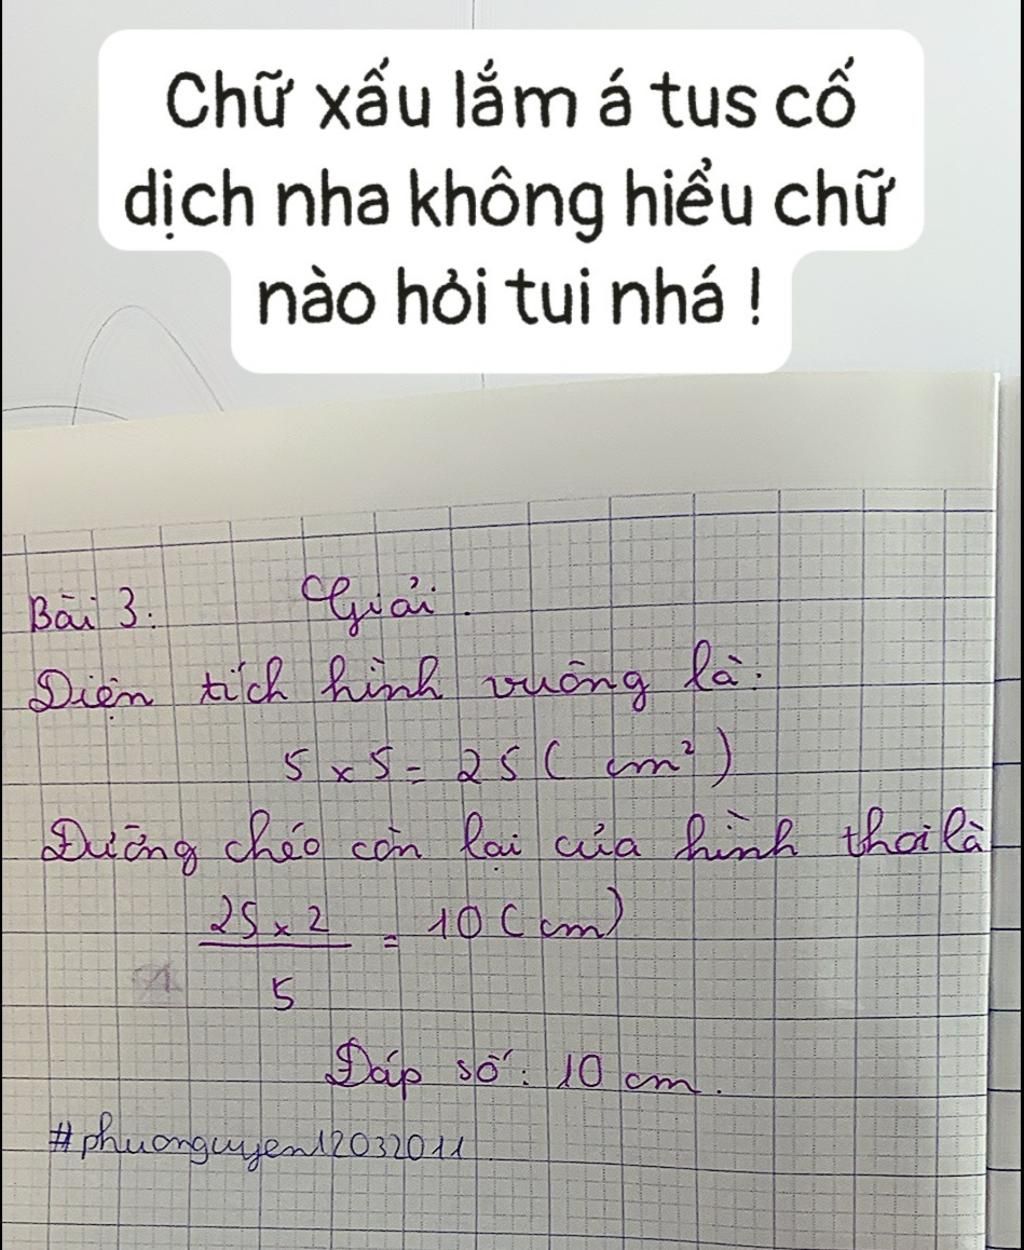 Chữ xấu lắm á tus cố
dịch nha không hiểu chữ
nào hỏi tui nhá !
Bài 3: Giải.
Diện tích hình vuông là:
5 x 5 = 25 ( cm²)
Đường chéo còn lại của hình thoi là
25 x 2
= 10 ( cm)
5
Đáp số: 10 cm.
#phuonguyen12032011